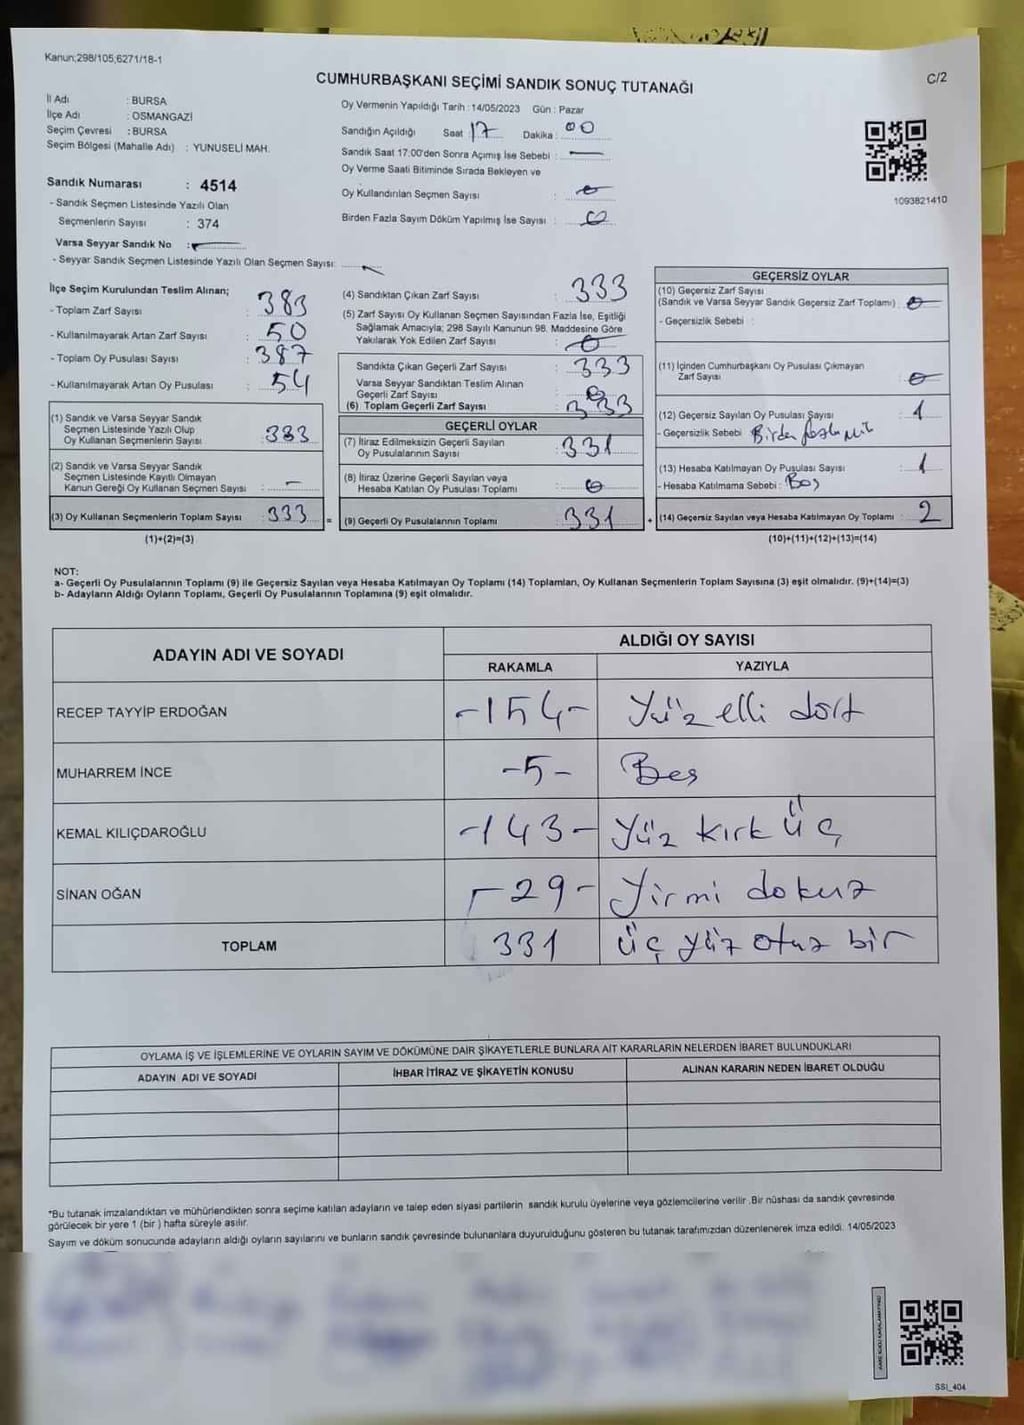 Kanun;298/105;6271/18-1
CUMHURBAŞKANI SEÇİMİ SANDIK SONUÇ TUTANAĞI
C/2
İl Adı : BURSA
İlçe Adı : OSMANGAZİ
Seçim Çevresi : BURSA
Seçim Bölgesi (Mahalle Adı) : YUNUSELİ MAH.
Sandık Numarası : 4514
- Sandık Seçmen Listesinde Yazılı Olan
Seçmenlerin Sayısı : 374
Varsa Seyyar Sandık No :
- Seyyar Sandık Seçmen Listesinde Yazılı Olan Seçmen Sayısı:
Oy Vermenin Yapıldığı Tarih : 14/05/2023 Gün : Pazar
Sandığın Açıldığı Saat 17 Dakika : 00
Sandık Saat 17:00'den Sonra Açımış İse Sebebi : —
Oy Verme Saati Bitiminde Sırada Bekleyen ve
Oy Kullandırılan Seçmen Sayısı : 0
Birden Fazla Sayım Döküm Yapılmış İse Sayısı : 0
1093821410
İlçe Seçim Kurulundan Teslim Alınan;
- Toplam Zarf Sayısı : 383
- Kullanılmayarak Artan Zarf Sayısı : 50
- Toplam Oy Pusulası Sayısı : 387
- Kullanılmayarak Artan Oy Pusulası : 54
(1) Sandık ve Varsa Seyyar Sandık
Seçmen Listesinde Yazılı Olup
Oy Kullanan Seçmenlerin Sayısı : 333
(2) Sandık ve Varsa Seyyar Sandık
Seçmen Listesinde Kayıtlı Olmayan
Kanun Gereği Oy Kullanan Seçmen Sayısı : —
(3) Oy Kullanan Seçmenlerin Toplam Sayısı : 333
(1)+(2)=(3)
(4) Sandıktan Çıkan Zarf Sayısı : 333
(5) Zarf Sayısı Oy Kullanan Seçmen Sayısından Fazla İse, Eşitliği
Sağlamak Amacıyla; 298 Sayılı Kanunun 98. Maddesine Göre
Yakılarak Yok Edilen Zarf Sayısı : 0
Sandıkta Çıkan Geçerli Zarf Sayısı : 333
Varsa Seyyar Sandıktan Teslim Alınan
Geçerli Zarf Sayısı : 0
(6) Toplam Geçerli Zarf Sayısı : 333
GEÇERLİ OYLAR
(7) İtiraz Edilmeksizin Geçerli Sayılan
Oy Pusulalarının Sayısı : 331
(8) İtiraz Üzerine Geçerli Sayılan veya
Hesaba Katılan Oy Pusulası Toplamı : 0
= (9) Geçerli Oy Pusulalarının Toplamı : 331 +
GEÇERSİZ OYLAR
(10) Geçersiz Zarf Sayısı
(Sandık ve Varsa Seyyar Sandık Geçersiz Zarf Toplamı) : 0
- Geçersizlik Sebebi :
(11) İçinden Cumhurbaşkanı Oy Pusulası Çıkmayan
Zarf Sayısı : 0
(12) Geçersiz Sayılan Oy Pusulası Sayısı : 1
- Geçersizlik Sebebi : Birden fazla
(13) Hesaba Katılmayan Oy Pusulası Sayısı : 1
- Hesaba Katılmama Sebebi : Boş
(14) Geçersiz Sayılan veya Hesaba Katılmayan Oy Toplamı : 2
(10)+(11)+(12)+(13)=(14)
NOT:
a- Geçerli Oy Pusulalarının Toplamı (9) ile Geçersiz Sayılan veya Hesaba Katılmayan Oy Toplamı (14) Toplamları, Oy Kullanan Seçmenlerin Toplam Sayısına (3) eşit olmalıdır. (9)+(14)=(3)
b- Adayların Aldığı Oyların Toplamı, Geçerli Oy Pusulalarının Toplamına (9) eşit olmalıdır.
ADAYIN ADI VE SOYADI
ALDIĞI OY SAYISI
RAKAMLA YAZIYLA
RECEP TAYYİP ERDOĞAN -154- Yüz elli dört
MUHARREM İNCE -5- Beş
KEMAL KILIÇDAROĞLU -143- Yüz kırk üç
SİNAN OĞAN -29- Yirmi dokuz
TOPLAM 331 üç yüz otuz bir
OYLAMA İŞ VE İŞLEMLERİNE VE OYLARIN SAYIM VE DÖKÜMÜNE DAİR ŞİKAYETLERLE BUNLARA AİT KARARLARIN NELERDEN İBARET BULUNDUKLARI
ADAYIN ADI VE SOYADI İHBAR İTİRAZ VE ŞİKAYETİN KONUSU ALINAN KARARIN NEDEN İBARET OLDUĞU
*Bu tutanak imzalandıktan ve mühürlendikten sonra seçime katılan adayların ve talep eden siyasi partilerin sandık kurulu üyelerine veya gözlemcilerine verilir .Bir nüshası da sandık çevresinde
görülecek bir yere 1 (bir ) hafta süreyle asılır.
Sayım ve döküm sonucunda adayların aldığı oyların sayılarını ve bunların sandık çevresinde bulunanlara duyurulduğunu gösteren bu tutanak tarafımızdan düzenlenerek imza edildi. 14/05/2023
SSI_404